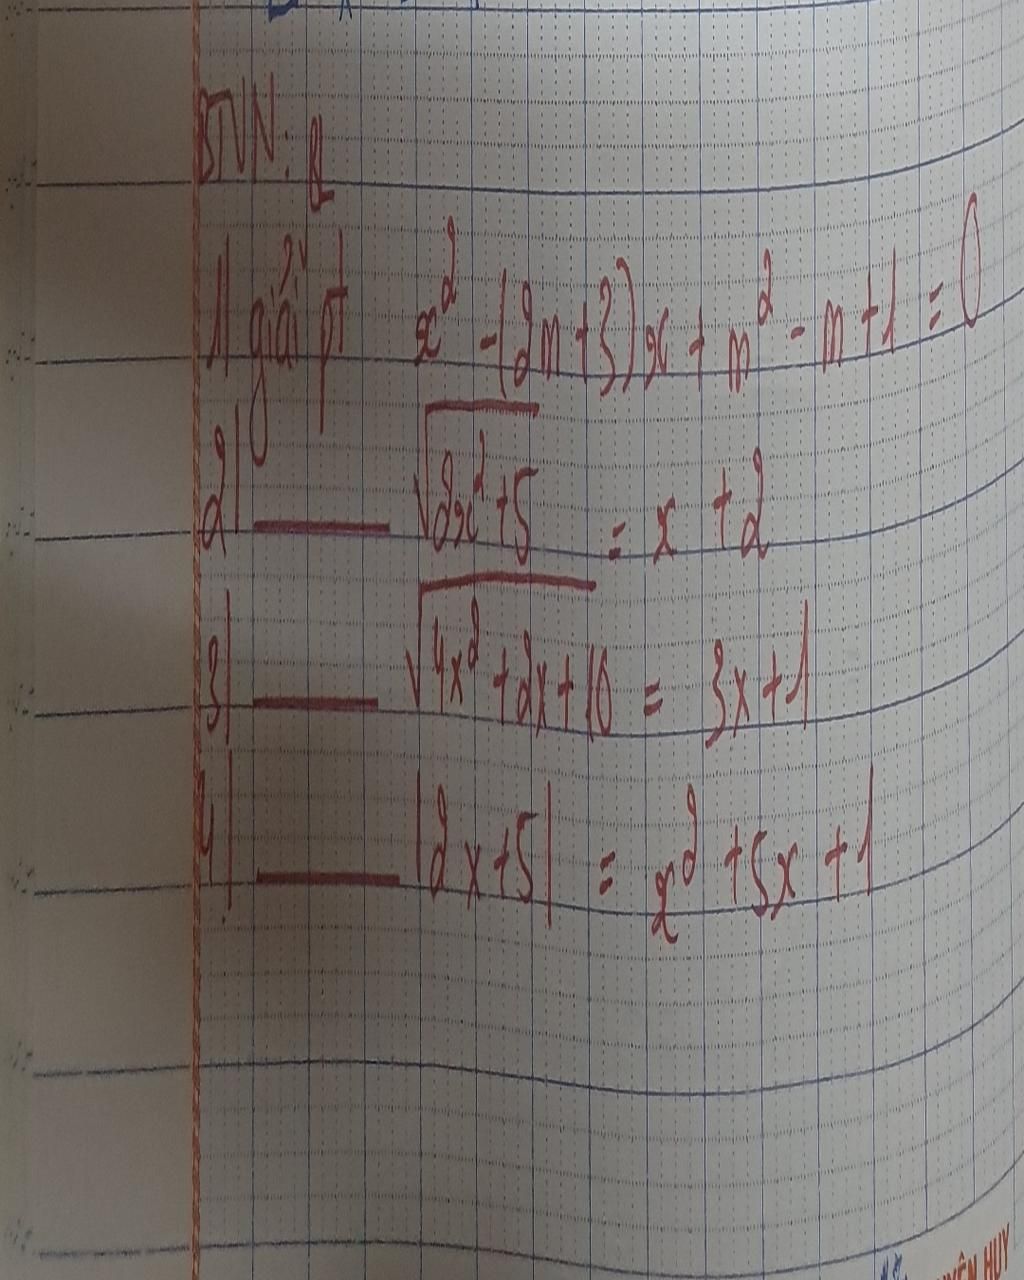 BTVN:
1) giải pt x² - (2m+3)x + m² - m + 1 = 0
2) ——— √(2x²+5) = x + 2
3) ——— √(4x²+2x+10) = 3x+1
4) ——— |2x+5| = x² + 5x + 1
HUY